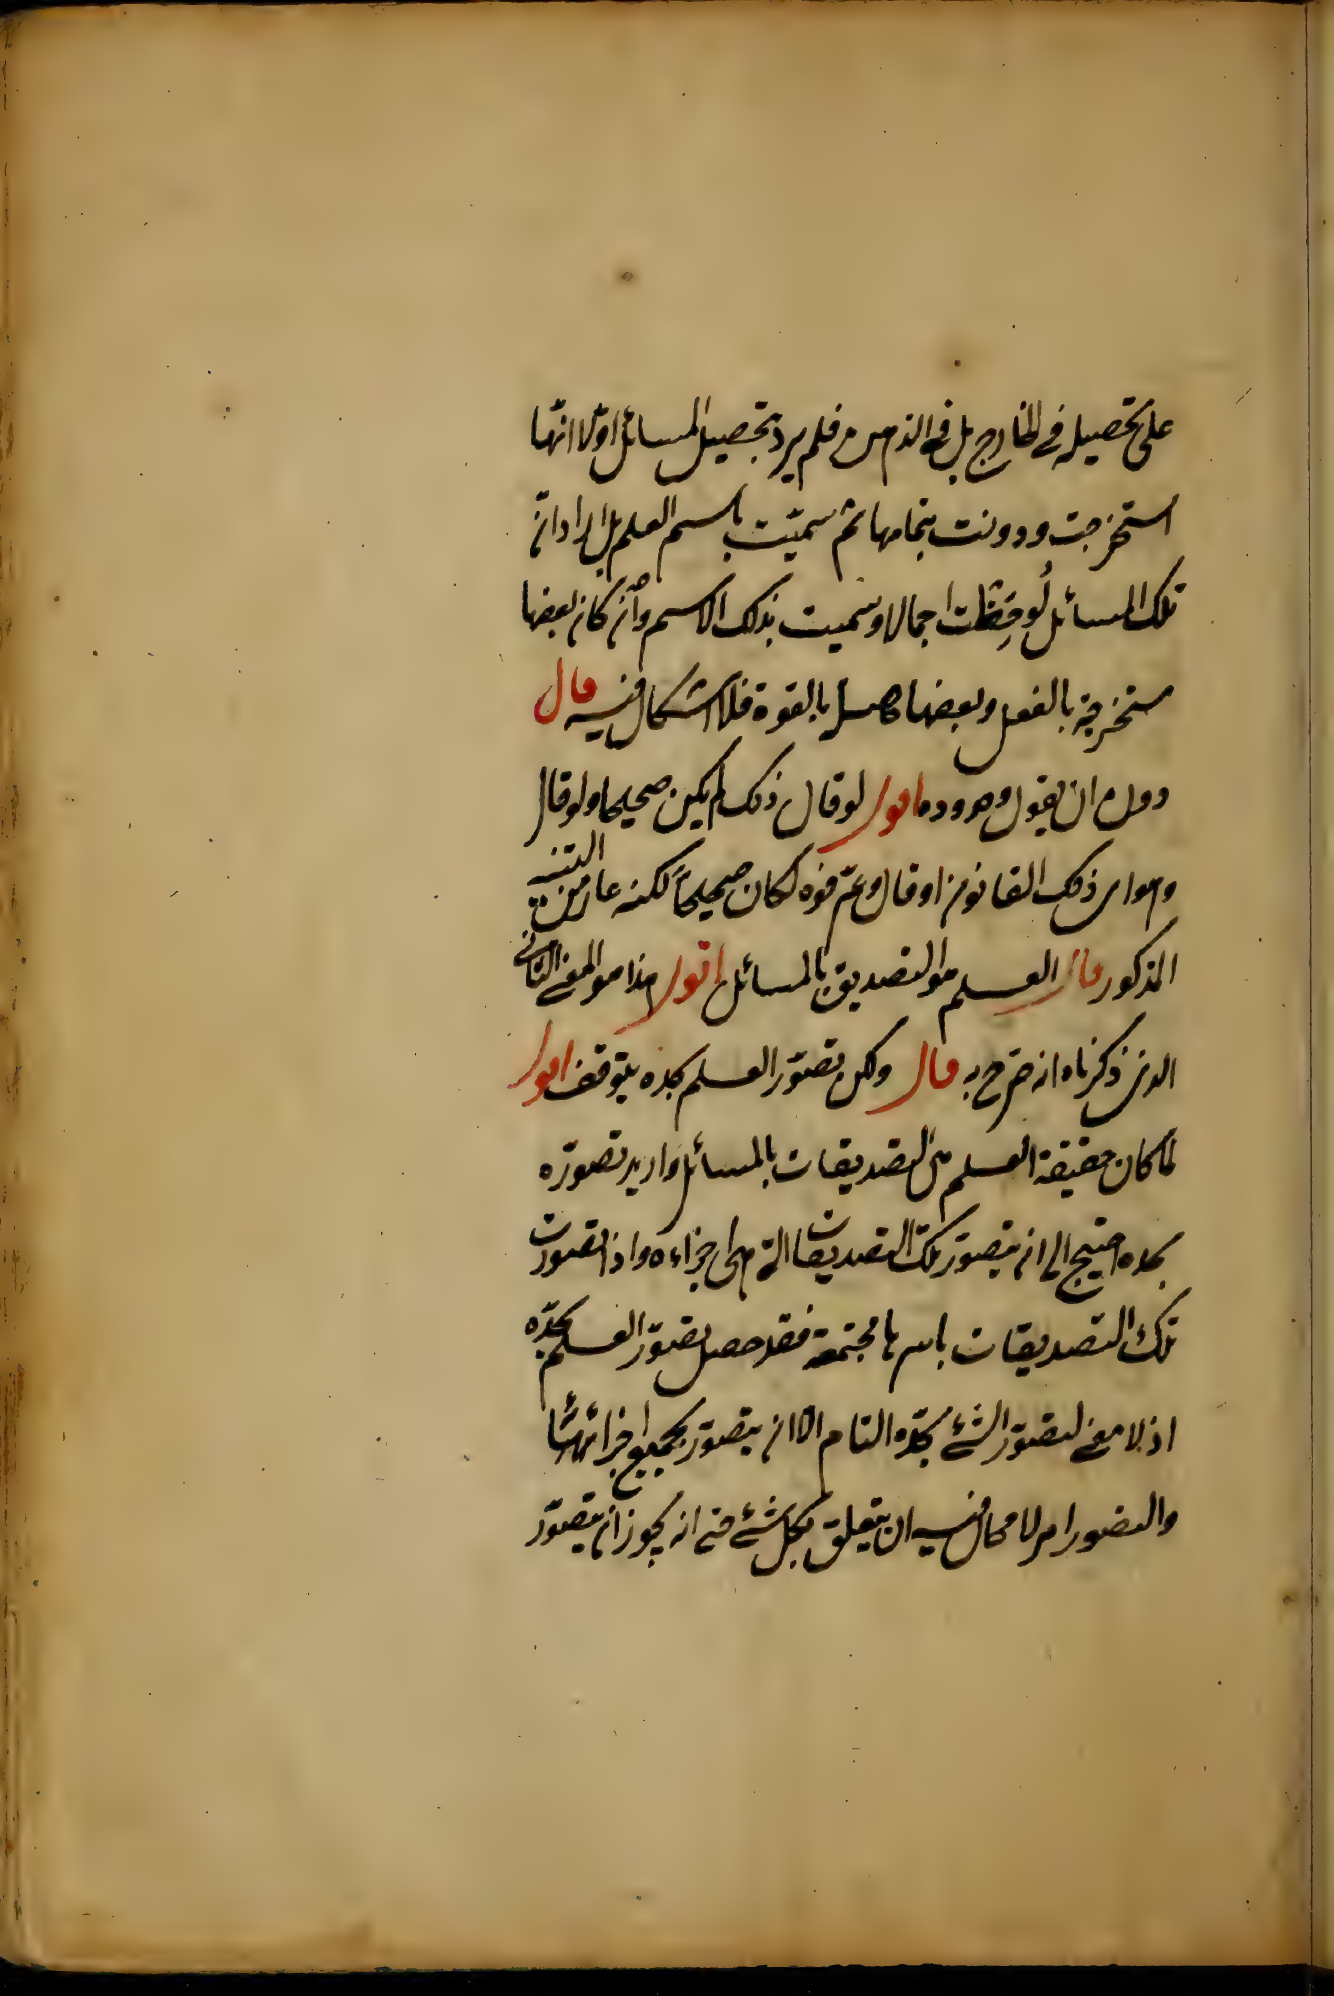 على تحصيله في الخارج بل في الذهن فلم يرد بتحصيل المسائل اولا انها
استخرجت ودونت بتمامها ثم سميت باسم العلم بل اراد ان
تلك المسائل لُوحِظت اجمالا وسميت بذلك الاسم وان كان بعضها
مستخرجة بالفعل وبعضها حاصل بالقوة فلا اشكال فيه قال
دون ان يقول وحدوده اقول لو قال ذلك لم يكن صحيحا ولو قال
وهو اى ذلك القانون او قال وعرّفوه لكان صحيحاً لكنه عار من التنبيه
المذكور قال العلم هو التصديق بالمسائل اقول هذا هو المعنى الثانى
الذى ذكرناه انه صرّح به قال ولكن تصوّر العلم بحده يتوقف اقول
لما كان حقيقة العلم هى التصديقات بالمسائل واريد تصوّره
بحده احتيج الى ان يتصوّر تلك التصديقات التى هى اجزاءه واذا تصورت
تلك التصديقات باسرها مجتمعة فقد حصل تصوّر العلم بحدّه
اذ لا معنى لتصوّر الشئ بحدّه التام الا ان يتصوّر بجميع اجزائه
والتصور امر لا محال فيه ان يتعلق بكل شئ حتى انه يجوز ان يتصوّر